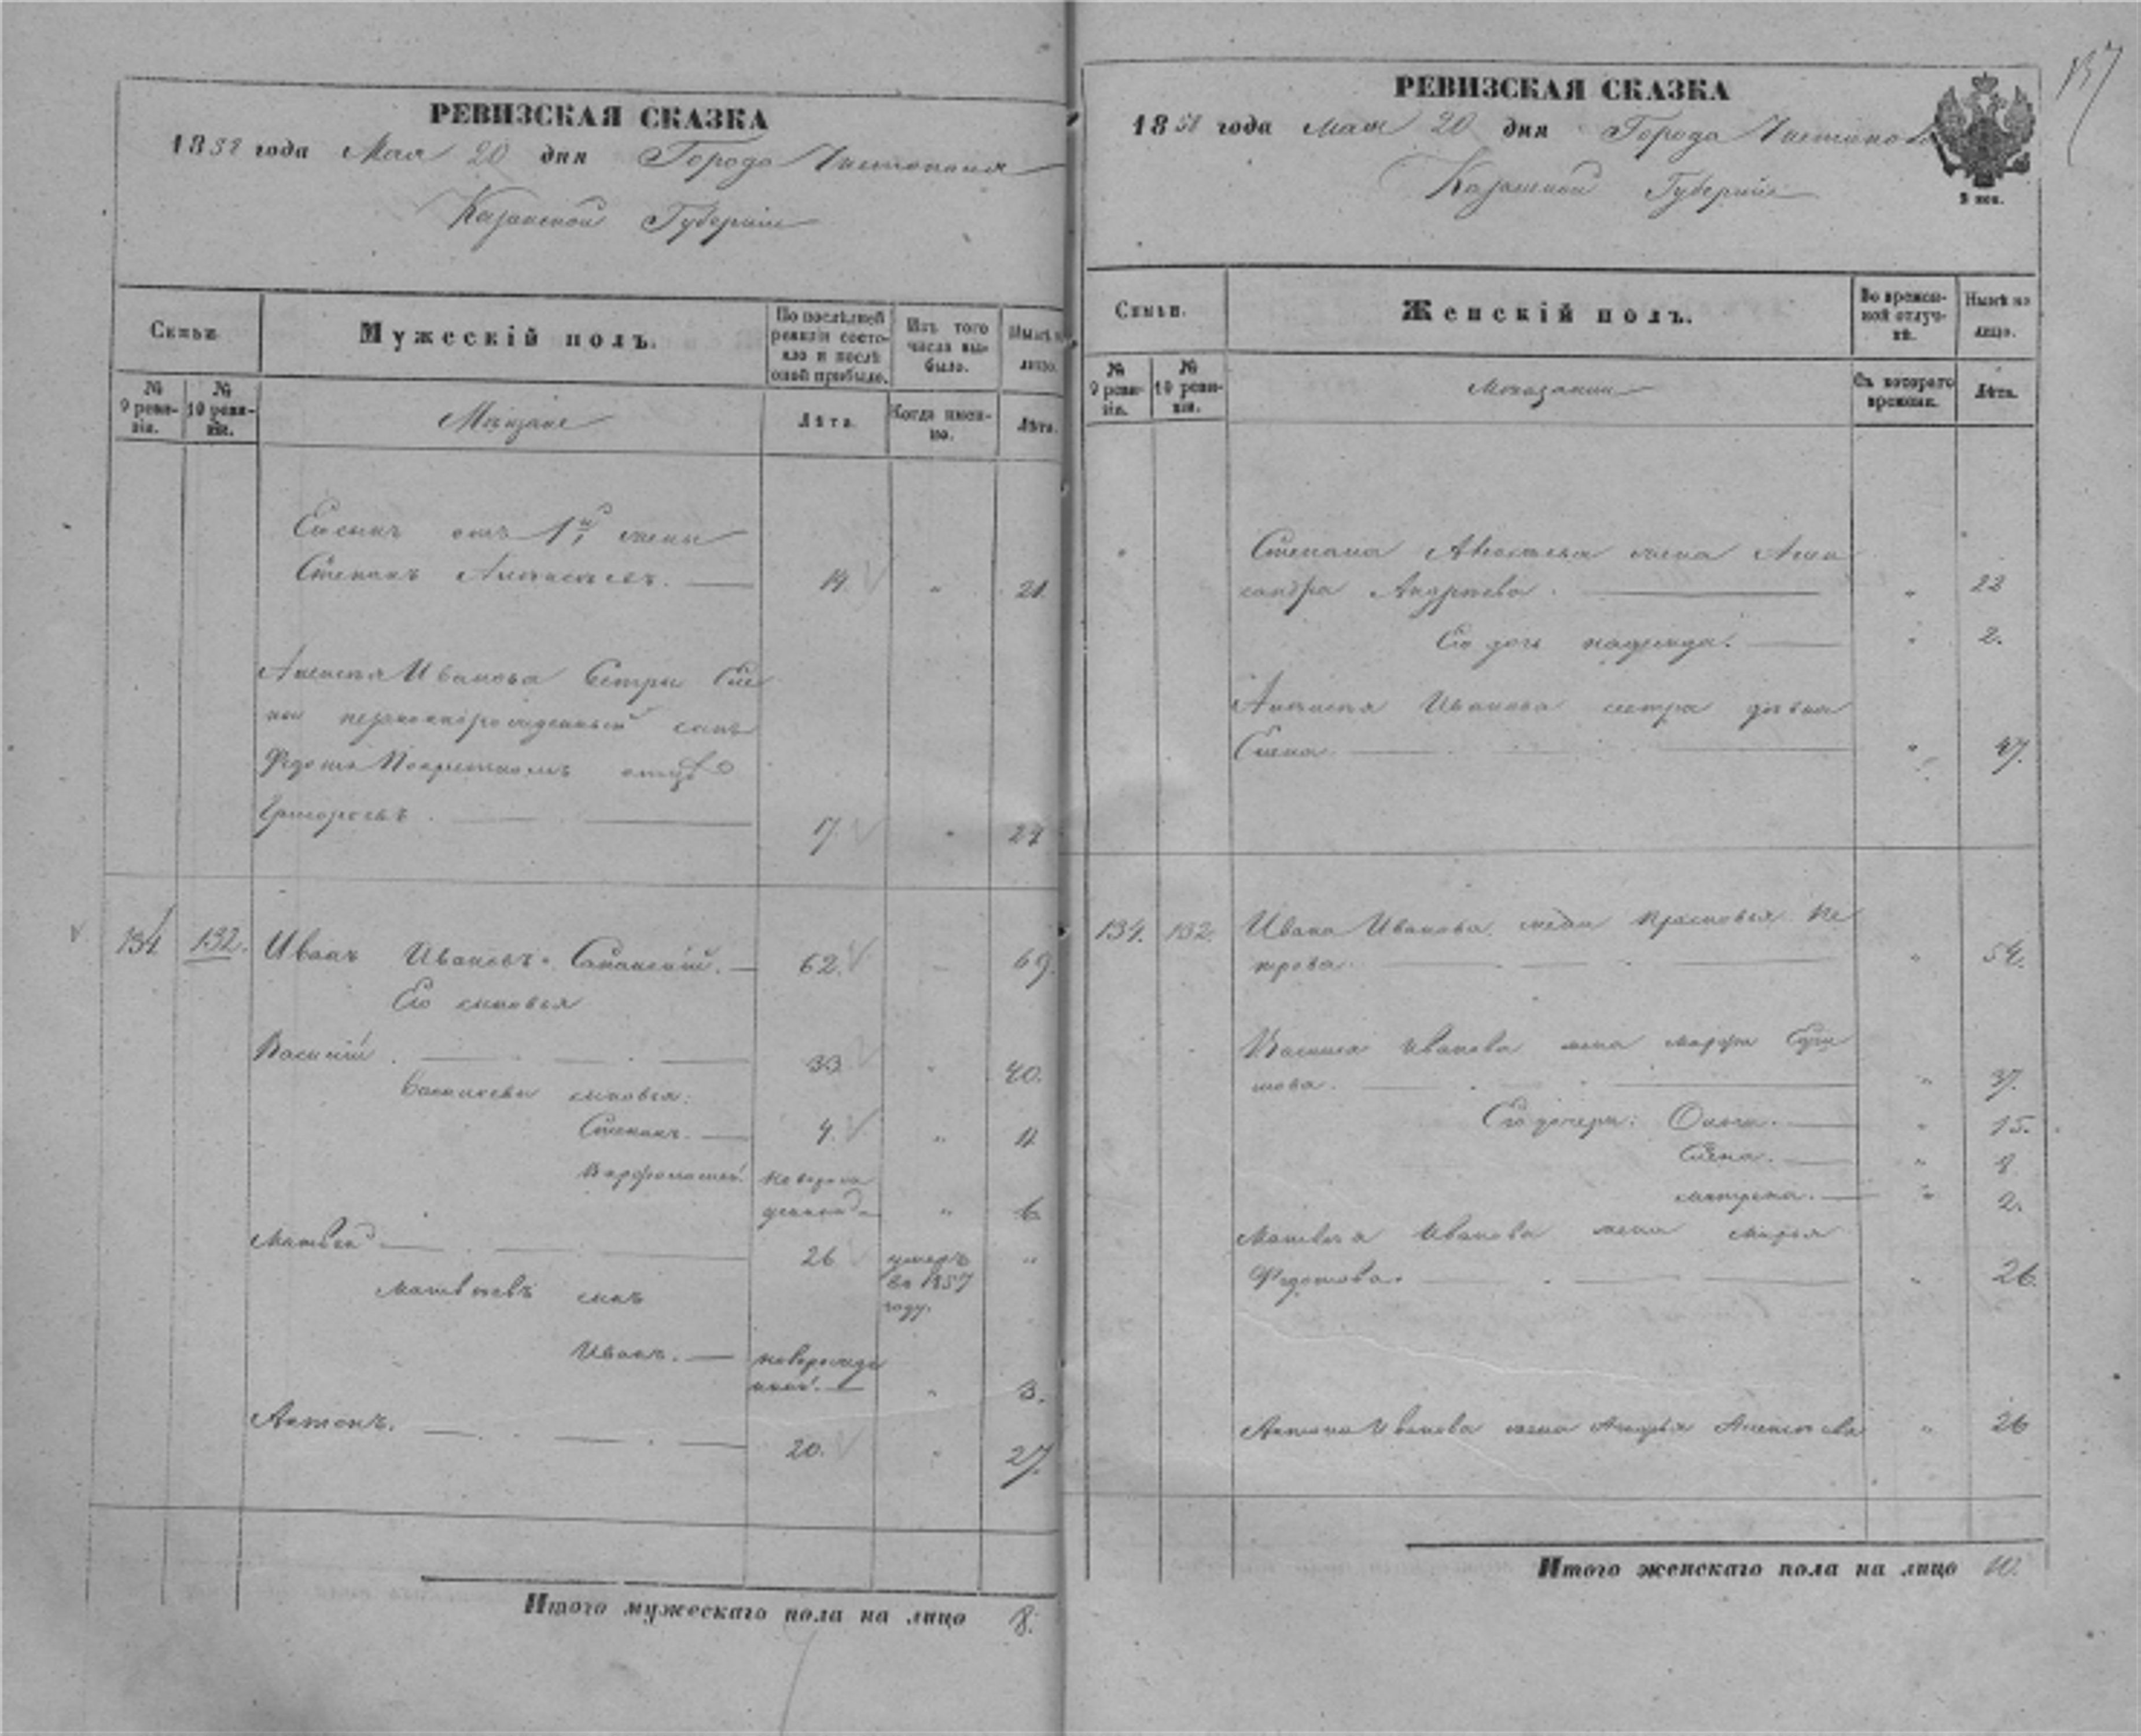 РЕВИЗСКАЯ СКАЗКА
1858 года Мая 20 дня Города Чистополя
Казанской Губернiи
Семьи.
Мужескiй полъ.
По послѣдней ревизiи состояло и послѣ оной прибыло.
Изъ того числа выбыло.
Нынѣ на лицо.
№ 9 ревизiи.
№ 10 ревизiи.
Мѣщане
Лѣта.
Когда именно.
Лѣта.
Его сынъ отъ 1й жены
Степанъ Алексѣевъ. 14 " 21.
Алексѣя Иванова сестры Еле
ны незаконнорожденный сынъ
Федотъ
Григорьевъ. 17. " 24
134 132. Иванъ Ивановъ 62. 69.
Его сыновья
Василiй. 33 " 40.
Васильевы сыновья:
Степанъ. 4. " 11
Варфоломей. новорож
денной " 6
Матвей 26 умеръ "
въ 1857
году.
Матвѣевъ сынъ
Иванъ. новорожде
нной. " 3.
Антонъ. 20. " 27.
Итого мужескаго пола на лицо 8.
РЕВИЗСКАЯ СКАЗКА
1858 года Мая 20 дня Города Чистополя
Казанской Губернiи
Семьи.
Женскiй полъ.
Во временной отлучкѣ.
Нынѣ на лицо.
№ 9 ревизiи.
№ 10 ревизiи.
Мѣщанки
Съ котораго времени.
Лѣта.
Степана Алексѣева жена Алек
сандра Андреева. " 22
Его дочь Надежда. " 2.
Алексѣя Иванова сестра дѣвка
Елена " 47.
134. 132. Ивана Иванова жена Прасковья Пе
трова. " 54.
Василья Иванова жена Марфа
" 37.
Его дочери: Ольга. " 15.
Елена. " 8
Матрена. " 2.
Матвея Иванова жена Марья
Федотова. " 26.
Антона Иванова жена Алексѣева " 26
Итого женскаго пола на лицо 10.